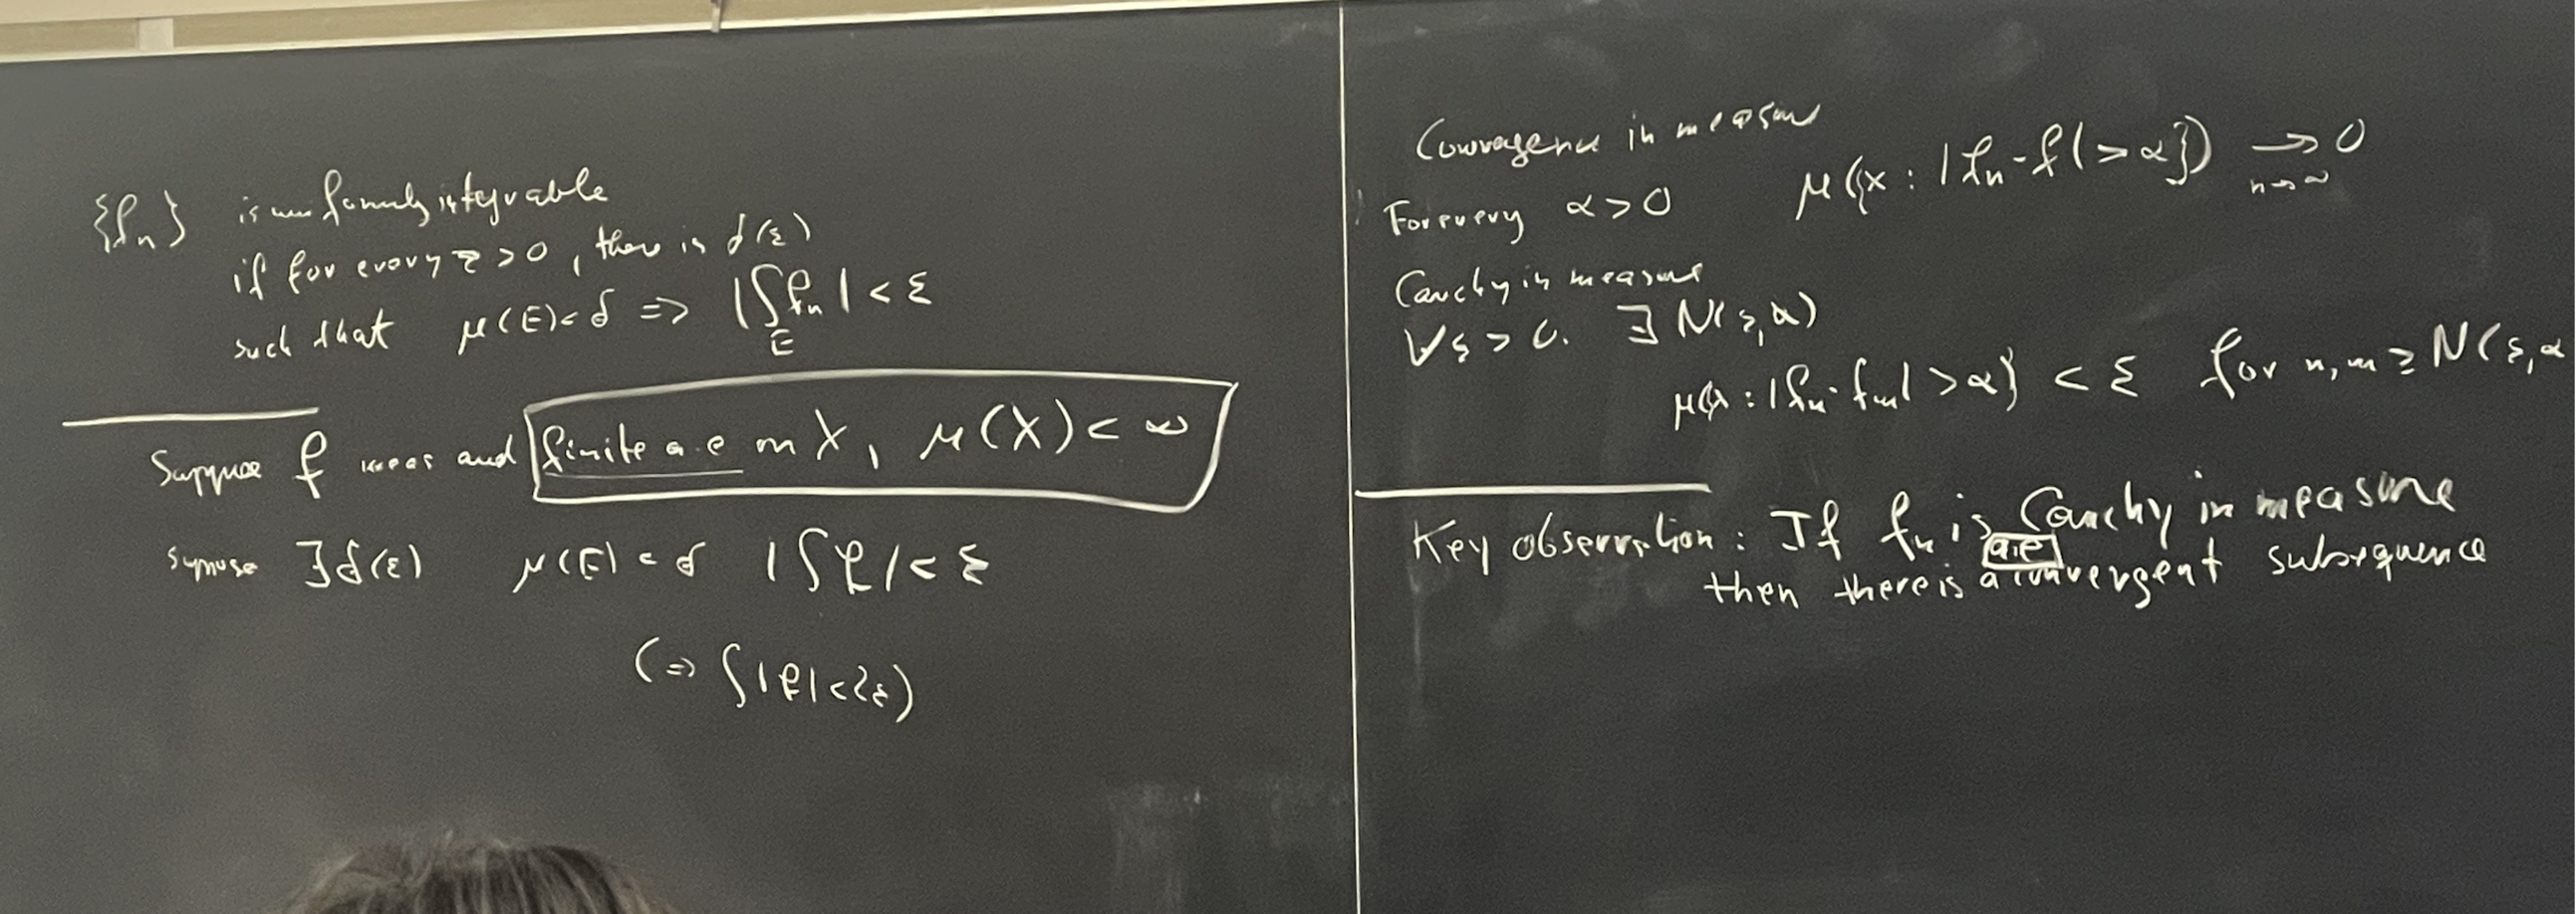 {fₙ} is uniformly integrable
if for every ε > 0, there is δ(ε)
such that μ(E) < δ ⇒ |∫_E fₙ| < ε
Suppose f meas and finite a.e on X, μ(X) < ∞
suppose ∃δ(ε) μ(E) < δ |∫f| < ε
(⇒ ∫|f| < 2ε)
Convergence in measure
For every α > 0 μ({x : |fₙ - f| > α}) → 0
n→∞
Cauchy in measure
∀ε > 0. ∃ N(ε, α)
μ{x : |fₙ - fₘ| > α} < ε for n, m ≥ N(ε, α
Key observation : If fₙ is Cauchy in measure
then there is a a.e convergent subsequence